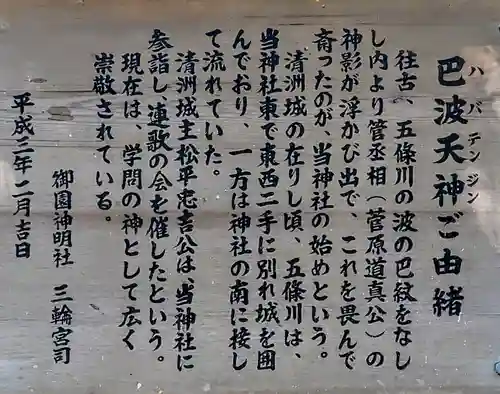 巴波天神ご由緒
ハバテンジン
往古、五條川の波の巴紋をなし
し内より管丞相(菅原道真公)の
神影が浮かび出で、これを畏んで
斎ったのが、当神社の始めという。
清洲城の在りし頃、五條川は、
当神社東で東西二手に別れ城を囲
んでおり、一方は神社の南に接し
て流れていた。
清洲城主松平忠吉公は、当神社に
参詣し、連歌の会を催したという。
現在は、学問の神として広く
崇敬されている。
御園神明社 三輪宮司
平成三年二月吉日